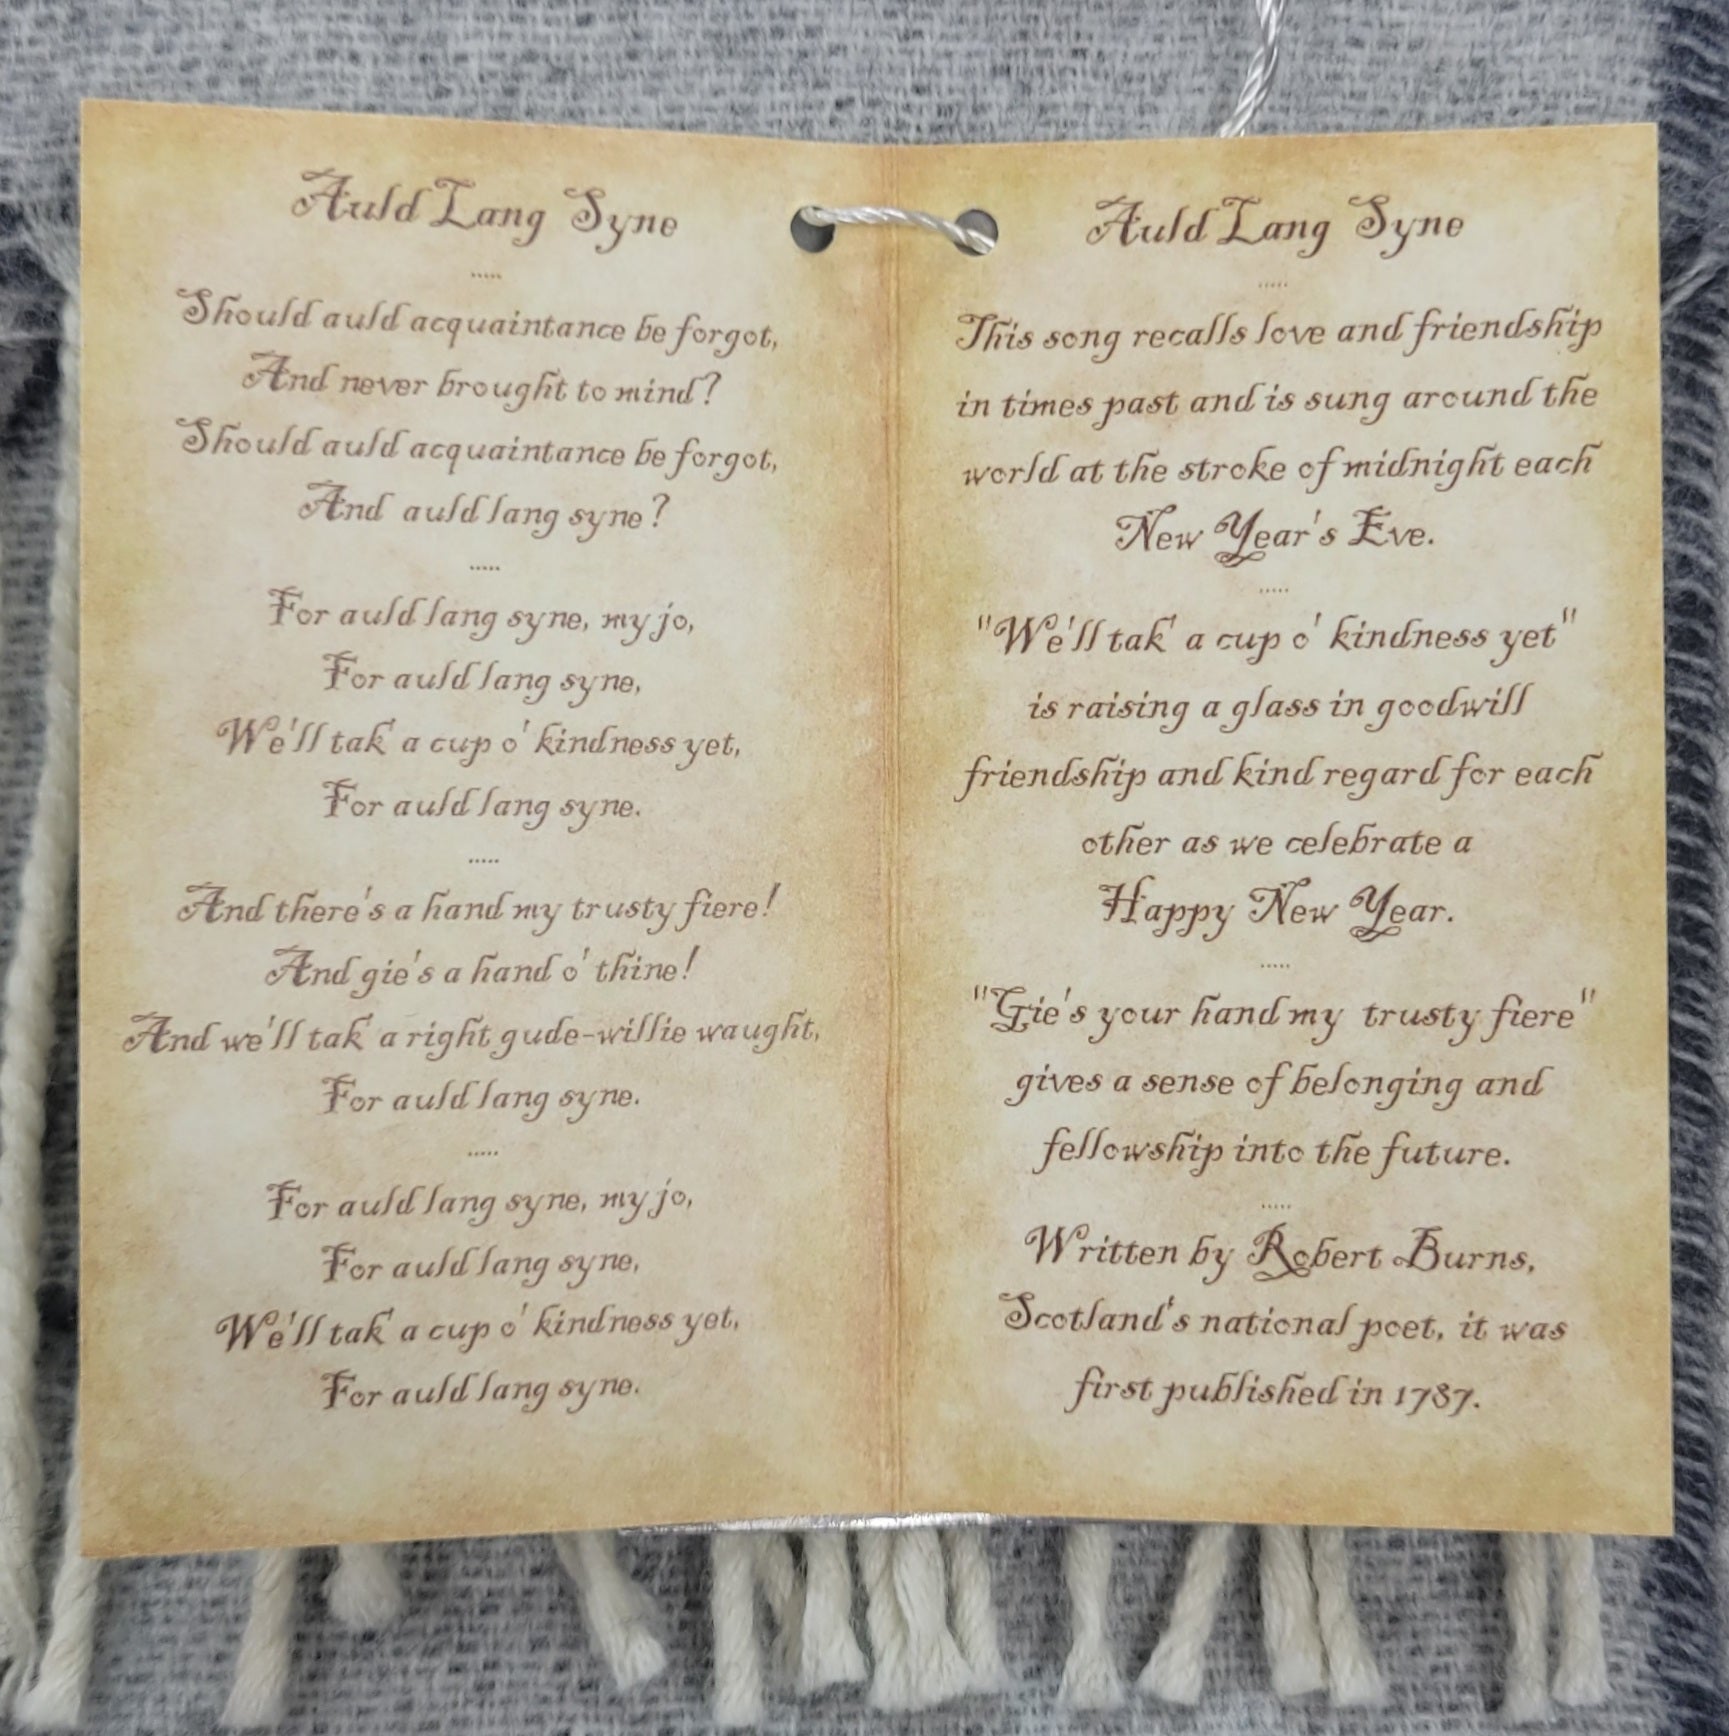 Auld Lang Syne
.....
Should auld acquaintance be forgot,
And never brought to mind?
Should auld acquaintance be forgot,
And auld lang syne?
.....
For auld lang syne, my jo,
For auld lang syne,
We'll tak' a cup o' kindness yet,
For auld lang syne.
.....
And there's a hand my trusty fiere!
And gie's a hand o' thine!
And we'll tak' a right gude-willie waught,
For auld lang syne.
.....
For auld lang syne, my jo,
For auld lang syne,
We'll tak' a cup o' kindness yet,
For auld lang syne.
Auld Lang Syne
.....
This song recalls love and friendship
in times past and is sung around the
world at the stroke of midnight each
New Year's Eve.
.....
"We'll tak' a cup o' kindness yet"
is raising a glass in goodwill
friendship and kind regard for each
other as we celebrate a
Happy New Year.
.....
"Gie's your hand my trusty fiere"
gives a sense of belonging and
fellowship into the future.
.....
Written by Robert Burns,
Scotland's national poet, it was
first published in 1787.